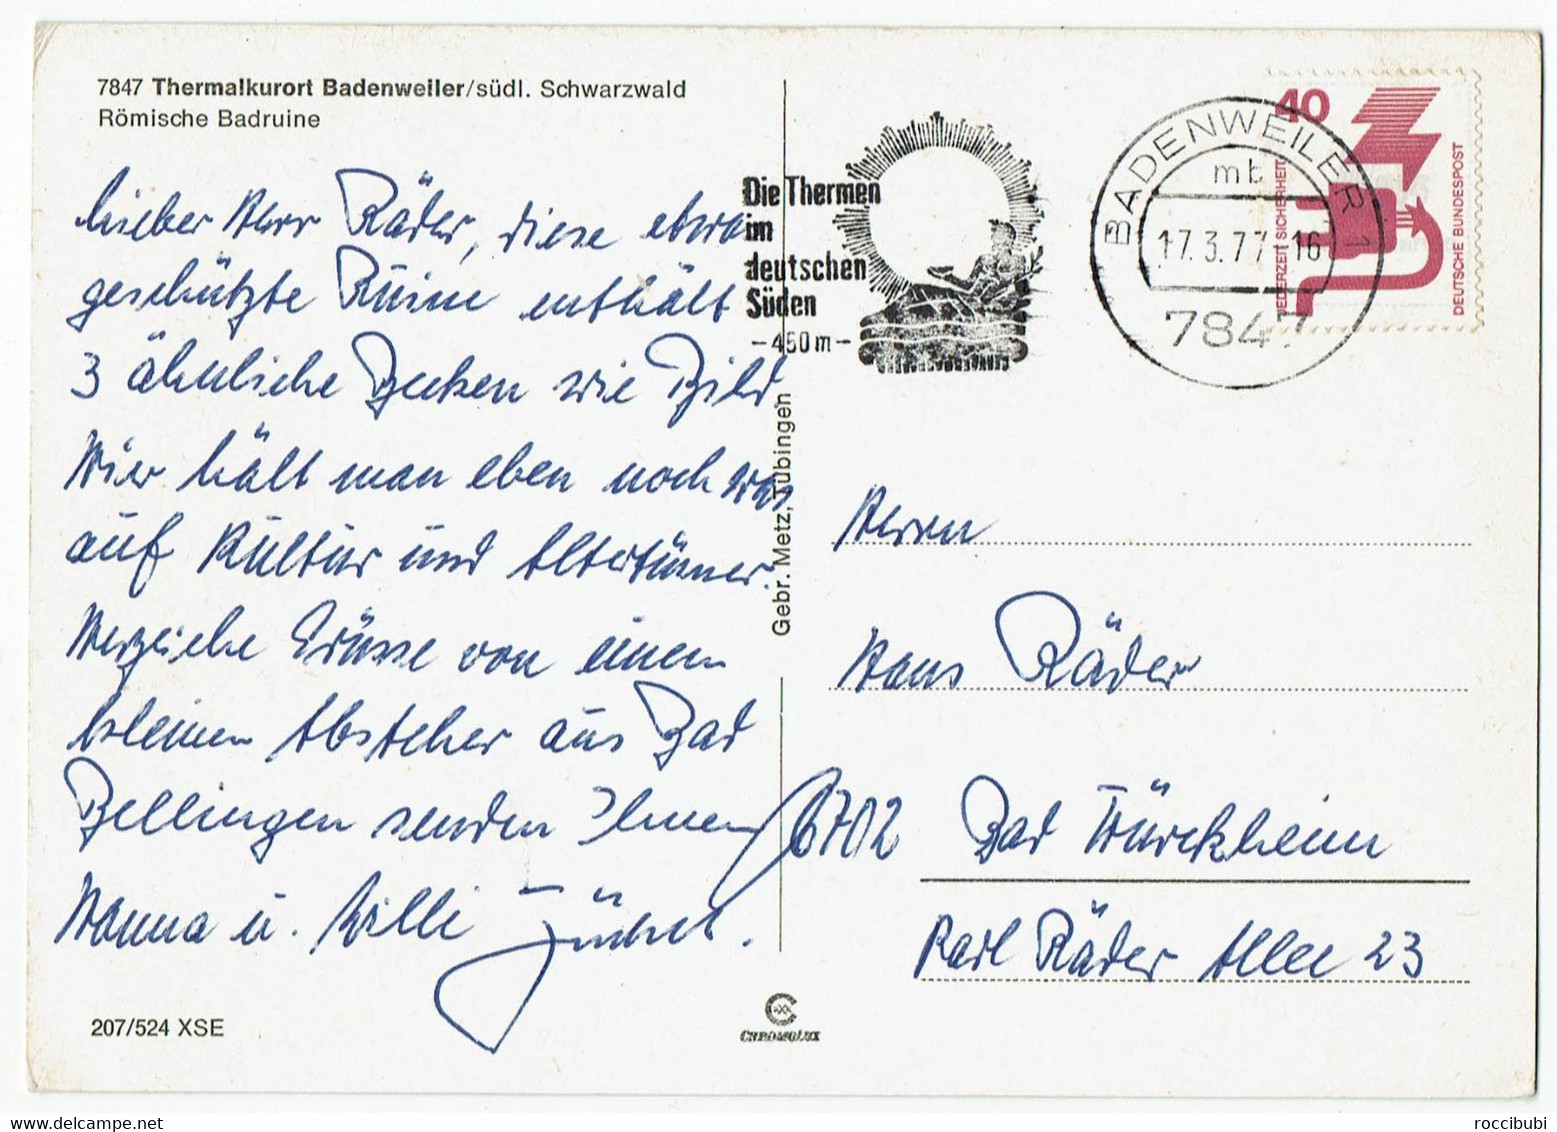 7847 Thermalkurort Badenweiler/südl. Schwarzwald
Römische Badruine
Lieber Herr Räder, diese etwa
geschützte Ruine enthält
3 ähnliche Becken wie Bild
Hier hält man eben noch was
auf Kultur und Altertümer.
Herzliche Grüsse von einem
kleinen Abstecher aus Bad
Bellingen senden Ihnen
Hanna u. Willi
207/524 XSE
Gebr. Metz, Tübingen
CHROMOLUX
Die Thermen
im
deutschen
Süden
-450m-
BADENWEILER 1
mb
17.3.77-16
7847
40
JEDERZEIT SICHERHEIT
DEUTSCHE BUNDESPOST
Herrn
Hans Räder
6702 Bad Dürckheim
Karl Räder Allee 23
roccibubi